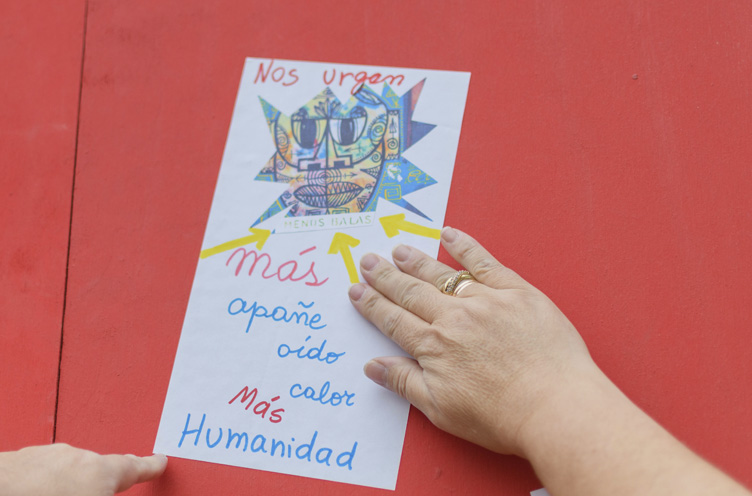 Nos urgen
MENOS BALAS
más
apañe
oído
calor
Más
Humanidad